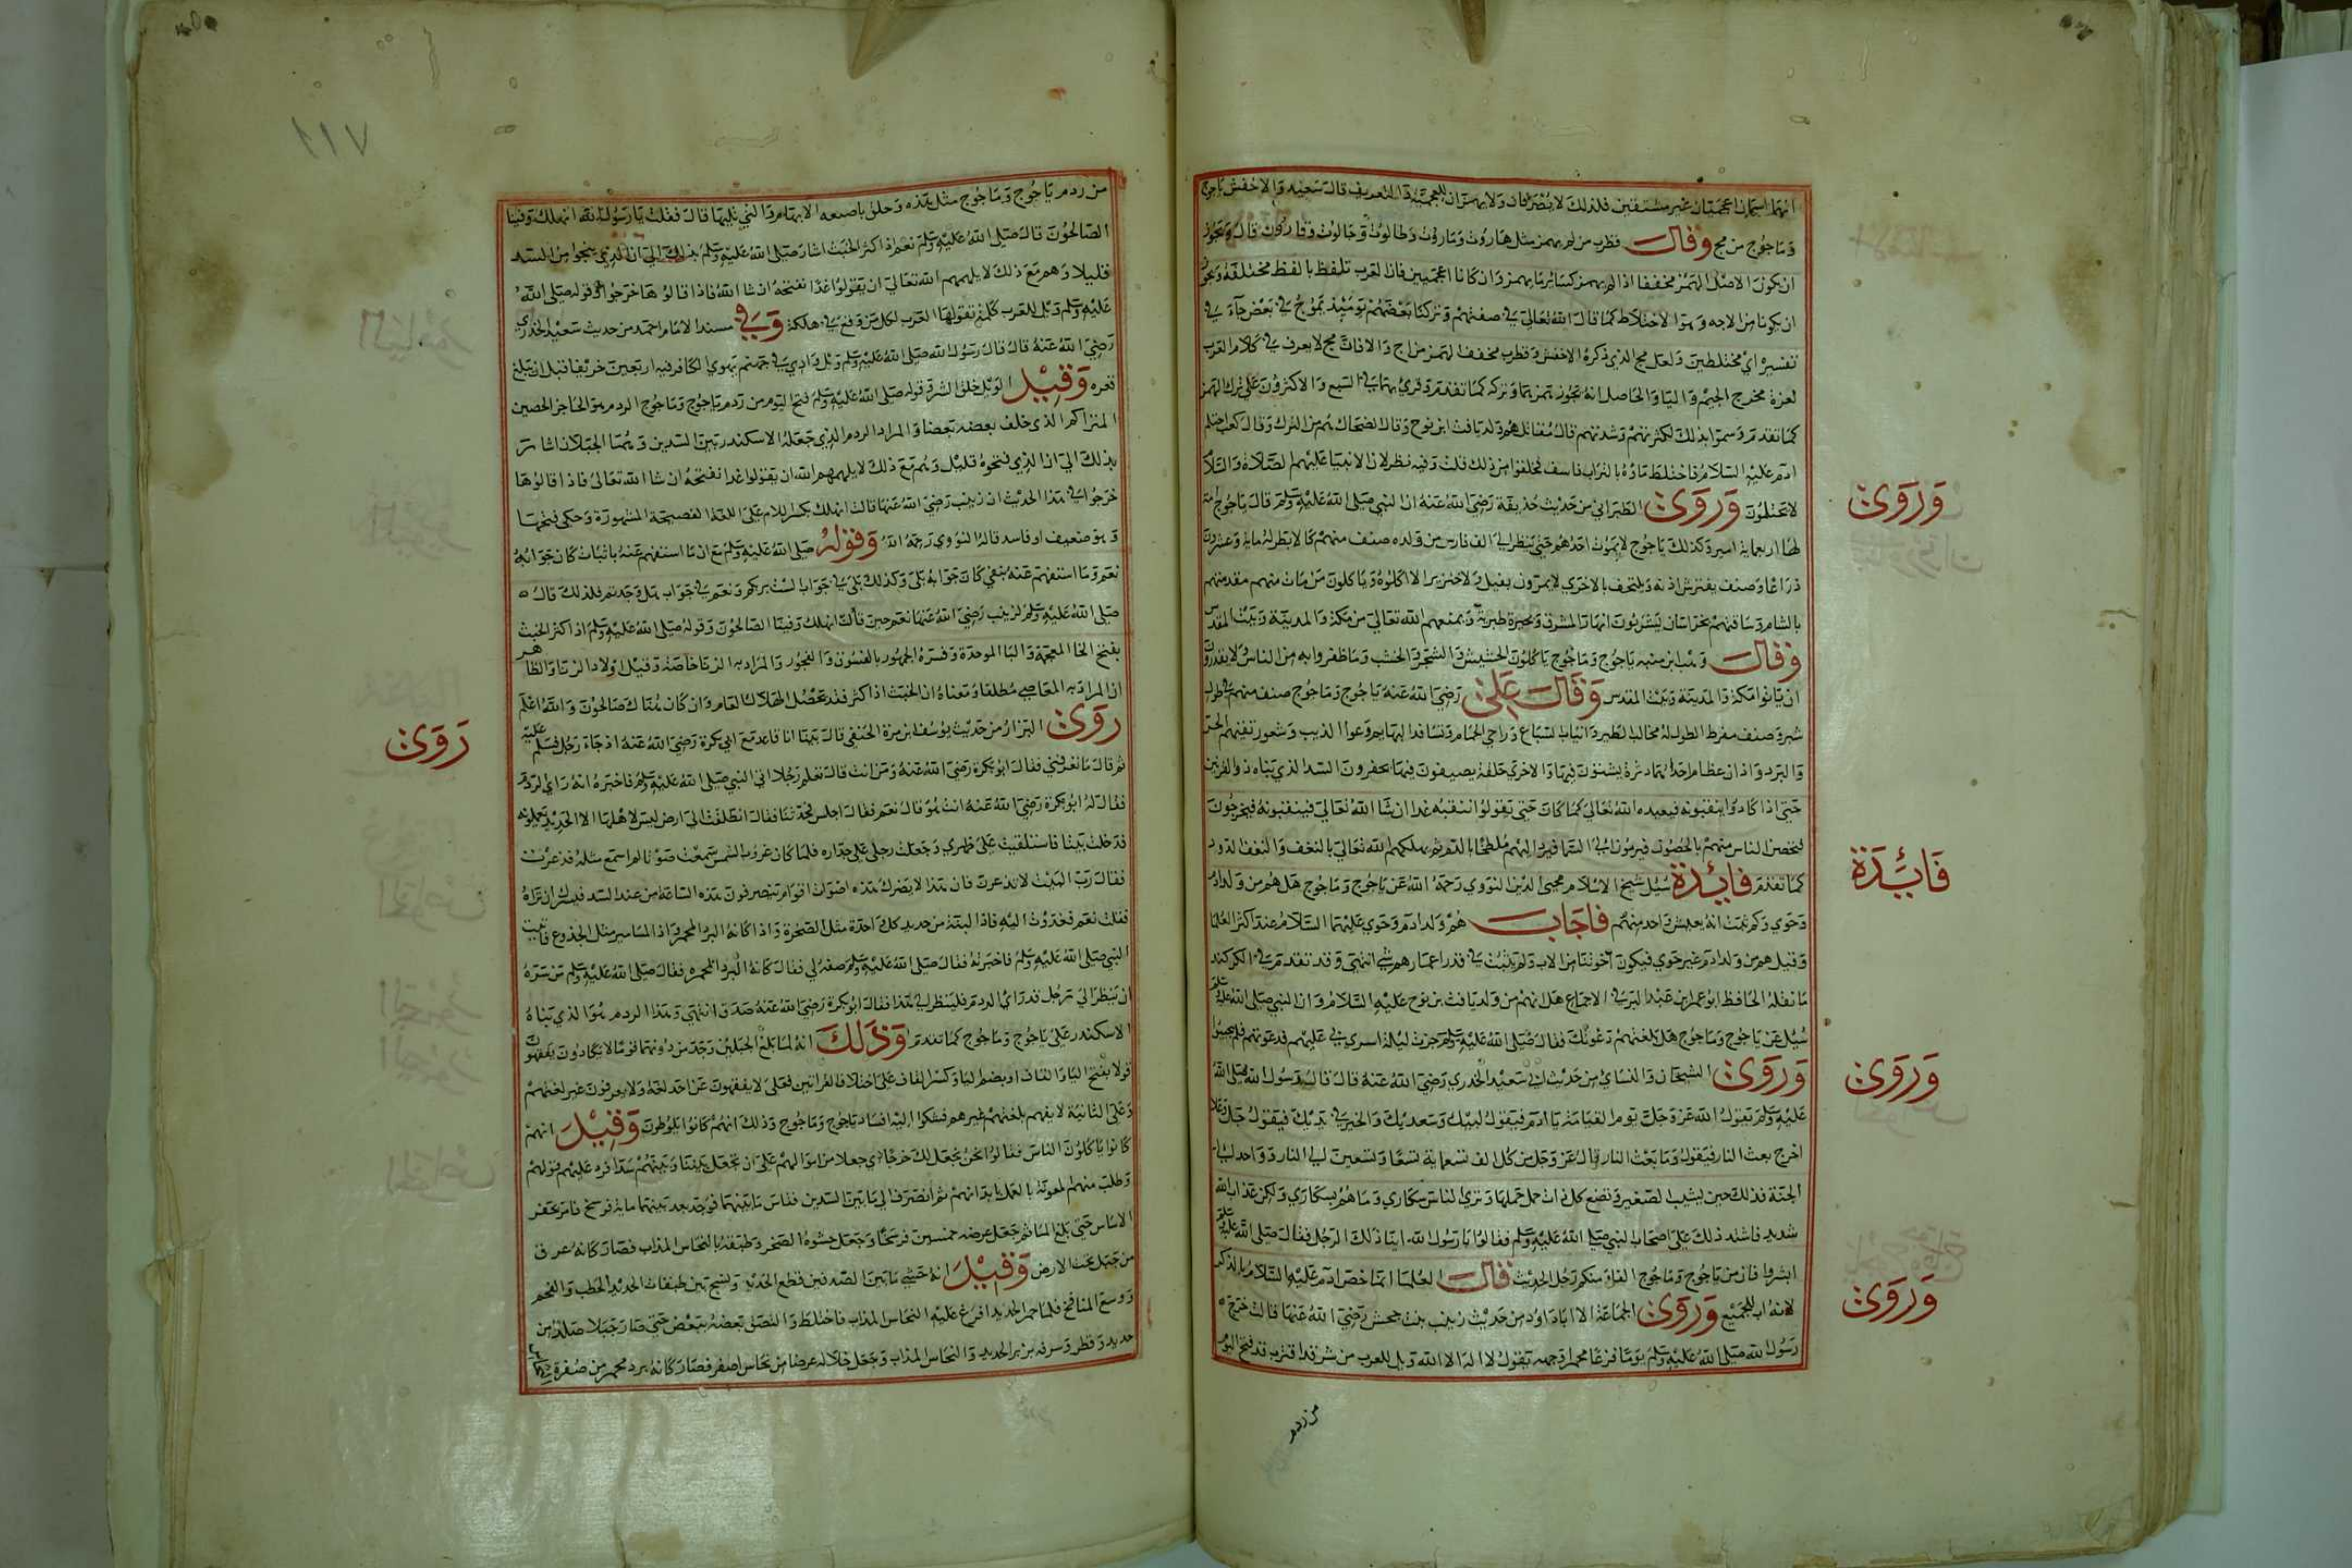 انهما اسمان اعجميان غير مشتقين فلذلك لا ينصرفان ولا يهمزان للعجمية والتعريف قال سعيد والاخفش ياجوج
وماجوج من مج وقال قطرب من لم يهمز مثل هاروت وماروت وطالوت وجالوت وقارون قال ويجوز
ان يكون الاصل الهمز مخففا اذا لم يهمز كسائر ما يهمز وان كانا اعجميين فان العرب تلفظ بالفظ مختلفة ويجوز
ان يكونا من الاجه وهو الاختلاط كما قال الله تعالى في صفتهم وتركنا بعضهم يومئذ يموج في بعض جآء في
تفسيره اي مختلطين ولعل مج الذي ذكره الاخفش وقطرب مخفف الهمز من اج والا فان مج لا يعرف في كلام العرب
لعزة مخرج الجيم واليا والحاصل انه يجوز همزهما وتركه كما تقدم وقرئ بهما في السبع والاكثرون على ترك الهمز
كما تقدم وسموا بذلك لكثرتهم وشدتهم قال مقاتل هم ولد يافث ابن نوح وقال الضحاك هم من الترك وقال كعب احتلم
ادم عليه السلام فاختلط ماؤه بالتراب فاسف فخلقوا من ذلك قلت وفيه نظر لان الانبيا عليهم الصلاة والسلام
لا يحتلمون وروى الطبراني من حديث حذيفة رضي الله عنه ان النبي صلى الله عليه وسلم قال ياجوج امة
لها اربعماية امير وكذلك ياجوج لا يموت احدهم حتى ينظر الى الف فارس من ولده صنف منهم كالارز طوله ماية وعشرون
ذراعا وصنف يفترش اذنه ويلتحف بالاخرى لا يمرون بفيل ولا خنزير الا اكلوه وياكلون من مات منهم مقدمتهم
بالشام وساقتهم بخراسان يشربون انهار المشرق وبحيرة طبرية ويمنعهم الله تعالى من مكة والمدينة وبيت المقدس
وقال وهب ابن منبه ياجوج وماجوج ياكلون الحشيش والشجر والخشب وما ظفروا به من الناس لا يقدرون
ان ياتوا مكة والمدينة وبيت المقدس وقال على رضي الله عنه ياجوج وماجوج صنف منهم في طول
شبر وصنف مفرط الطول له مخالب الطير وانياب السباع وتداعي الحمام وتسافد البهايم وعواا الذيب وشعور تقيهم الحر
والبرد واذان عظام احداهما وبرة يشتون فيها والاخرى جلفة يصيفون فيها يحفرون السد الذي بناه ذو القرنين
حتى اذا كادوا ينقبونه فيعيده الله تعالى كما كان حتى يقولوا ننقبه غدا ان شا الله تعالى فينقبونه فيخرجون
فتحصن الناس منهم بالحصون فيرمون الى السما فيرد اليهم ملطخا بالدم ثم يهلكهم الله تعالى بالنغف والنغف الدود
كما تقدم فائدة سئل شيخ الاسلام محيي الدين النووي رحمه الله عن ياجوج وماجوج هل هم من ولد ادم
وحوي وكم ثبت انه يعيش واحد منهم فاجاب هم ولد ادم وحوي عليهما السلام عند اكثر العلما
وقيل هم من ولد ادم غير حوي فيكون اخوتنا من الاب ولم يثبت في قدر اعمارهم شي انتهى وقد تقدم في الكركند
ما نقله الحافظ ابو عمر ابن عبد البر في الاجماع على انهم من ولد يافث بن نوح عليه السلام وان النبي صلى الله عليه وسلم
سئل عن ياجوج وماجوج هل بلغتهم دعوتك فقال صلى الله عليه وسلم جزت ليلة اسري بي عليهم فدعوتهم فلم يجيبوا
وروى الشيخان والنسائي من حديث ابي سعيد الخدري رضي الله عنه قال قال رسول الله صلى الله
عليه وسلم يقول الله عز وجل يوم القيامة يا ادم فيقول لبيك وسعديك والخير في يديك فيقول جل وعلا
اخرج بعث النار فيقول وما بعث النار قال عز وجل من كل الف تسعماية تسعا وتسعين الى النار وواحد الى
الجنة فذلك حين يشيب الصغير وتضع كل ذات حمل حملها وترى الناس سكارى وما هم بسكارى ولكن عذاب الله
شديد فاشتد ذلك على اصحاب النبي صلى الله عليه وسلم فقالوا يا رسول الله اينا ذلك الرجل فقال صلى الله عليه وسلم
ابشروا فان من ياجوج وماجوج الفا ومنكم رجل الحديث قال العلما انما خص ادم عليه السلام بالذكر
لانه اب للجميع وروى الجماعة الا ابا داود من حديث زينب بنت جحش رضي الله عنها قالت خرج
رسول الله صلى الله عليه وسلم يوما فزعا محمرا وجهه يقول لا اله الا الله ويل للعرب من شر قد اقترب قد فتح اليوم
من ردم
وروى
فائدة
وروى
وروى
من ردم ياجوج وماجوج مثل هذه وحلق باصبعه الابهام والتي تليها قالت فقلت يا رسول الله انهلك وفينا
الصالحون قال صلى الله عليه وسلم نعم اذا كثر الخبث اشار صلى الله عليه وسلم بذلك الى ان الذي فتحوا من السد
قليلا وهم مع ذلك لا يلهمهم الله تعالى ان يقولوا غدا نفتحه ان شا الله فاذا قالوها خرجوا وقوله صلى الله
عليه وسلم ويل للعرب كلمة تقولها العرب لكل من وقع في هلكة وفي مسند الامام احمد من حديث سعيد الخدري
رضي الله عنه قال قال رسول الله صلى الله عليه وسلم ويل وادي في جهنم يهوي الكافر فيه اربعين خريفا قبل ان يبلغ
قعره وقيل الويل حلول الشر وقوله صلى الله عليه وسلم فتح اليوم من ردم ياجوج وماجوج الردم هو الحاجز الحصين
المتراكم الذي خلف بعضه بعضا والمراد الردم الذي جعله الاسكندر بين السدين وهما الجبلان اشار
بذلك الى ان الذي فتحوه قليل وهم مع ذلك لا يلهمهم الله ان يقولوا غدا نفتحه ان شا الله تعالى فاذا قالوها
خرجوا في هذا الحديث ان زينب رضي الله عنها قالت انهلك بكسر اللام على اللغة الفصيحة المشهورة وحكى فتحها
وهو ضعيف او فاسد قاله النووي رحمه الله وقوله صلى الله عليه وسلم نعم ان ما استفهم عنه باثبات كان جوابه
نعم وما استفهم عنه بنفي كان جوابه بلى وكذلك بلى في جواب الست بربكم ونعم في جواب هل وجدتم فلذلك قال
صلى الله عليه وسلم لزينب رضي الله عنها نعم حين قالت انهلك وفينا الصالحون وقوله صلى الله عليه وسلم اذا كثر الخبث
بفتح الخا المعجمة والبا الموحدة وفسره الجمهور بالفسوق والفجور والمراد به الزنا خاصة وقيل اولاد الزنا والظاهر
ان المراد به المعاصي مطلقا ومعناه ان الخبث اذا كثر فقد يحصل الهلاك العام وان كان هناك صالحون والله اعلم
روى البزار من حديث يوسف ابن مرة الحنفي قال بينا انا قاعد مع ابي بكرة رضي الله عنه اذ جاء رجل فسلم عليه
ثم قال ما تعرفني فقال ابو بكرة رضي الله عنه ومن انت قال تعلم رجلا اتى النبي صلى الله عليه وسلم فاخبره انه راي الردم
فقال له ابو بكرة رضي الله عنه انت هو قال نعم فقال اجلس فحدثنا فقال انطلقت الى ارض ليس لاهلها الا الحديد يعملونه
فدخلت بيتا فاستلقيت على ظهري وجعلت رجلى على جداره فلما كان غروب الشمس سمعت صوتا لم اسمع مثله فذعرت
فقال رب البيت لا تذعرن فان هذا لا يضرك هذه اصوات اقوام ينصرفون هذه الساعة من عند السد فيسرك ان تراه
فقلت نعم فغدوت اليه فاذا لبنه من حديد كل واحدة مثل الصخرة واذا كانه البرد المحبر واذا المسامير مثل الجذوع فاتيت
النبي صلى الله عليه وسلم فاخبرته فقال صلى الله عليه وسلم صفه لي فقال كانه البرد المحبره فقال صلى الله عليه وسلم من سره
ان ينظر الى رجل قد راى الردم فلينظر الى هذا فقال ابو بكرة رضي الله عنه صدق انتهى وهذا الردم هوا الذي بناه
الاسكندر على ياجوج وماجوج كما تقدم وذلك انه لما بلغ الجبلين وجد من دونهما قوما لا يكادون يفقهون
قولا بفتح اليا والقاف او بضم اليا وكسر القاف على اختلاف القراتين فعلى لا يفقهون عن احد لغة ولا يعرفون غير لغتهم
وعلى الثانية لا يفهم بلغتهم غيرهم فشكوا اليه افساد ياجوج وماجوج وذلك انهم كانوا يلوطون وقيل انهم
كانوا ياكلون الناس فقالوا نحن نجعل لك خرجا اي جعلا من اموالهم على ان تجعل بيننا وبينهم سدا فرد عليهم قولهم
وطلب منهم المعونة بالعمل بابدانهم ثم انصرف الى ما بين السدين فقاس ما بينهما فوجد بعد بينهما ماية فرسخ فامر بحفر
الاساس حتى بلغ الماء ثم جعل عرضه خمسين فرسخا وجعل حشوه الصخر وطبقه بالنحاس المذاب فصار كانه عرق
من جبل تحت الارض وقيل انه حشى ما بين الصدفين قطع الحديد ونسج بين طبقات الحديد الحطب والفحم
ووسع المنافخ فلما حمر الحديد افرغ عليه النحاس المذاب فاختلط والتصق بعضه ببعض حتى صار جبلا صلدا من
حديد وقطر وسرفه بزبر الحديد والنحاس المذاب وجعل خلاله عرضا من نحاس اصفر فصار كانه برد محبر من صفرة
روى